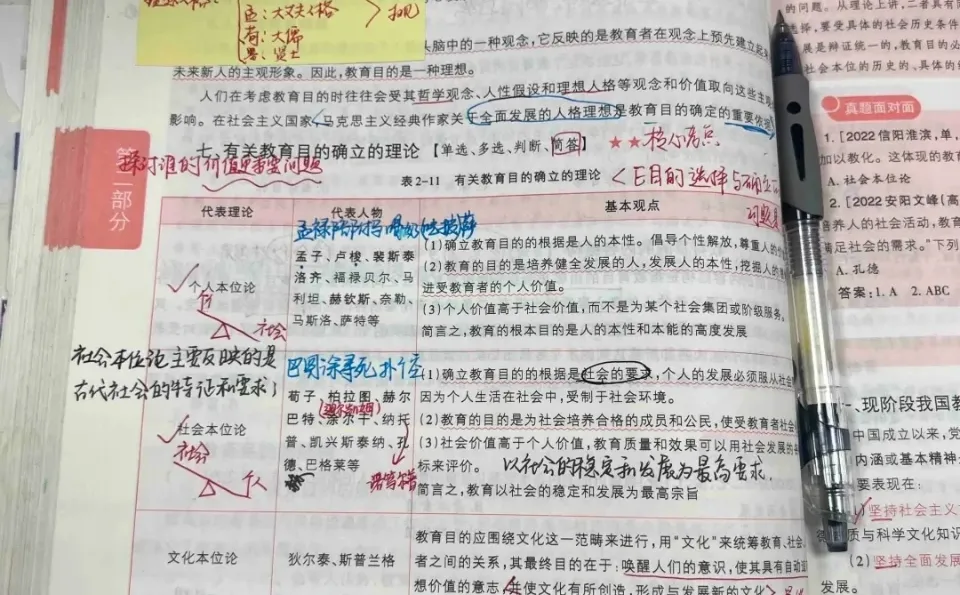 孟:大丈夫人格
荀:大儒
墨:贤士
头脑中的一种观念,它反映的是教育者在观念上预先建立起来
未来新人的主观形象。因此,教育目的是一种理想。
人们在考虑教育目的时往往会受其哲学观念、人性假设和理想人格等观念和价值取向这些主
影响。在社会主义国家,马克思主义经典作家关于全面发展的人格理想是教育目的确定的重要依据
七、有关教育目的确立的理论【单选、多选、判断、简答】
★★核心考点
探讨谁的价值更重要问题
表 2-11 有关教育目的确立的理论
第二部分
代表理论 代表人物 基本观点
个人本位论
个
社会
孟子、卢梭、裴斯泰
洛齐、福禄贝尔、马
利坦、赫钦斯、奈勒、
马斯洛、萨特等
(1)确立教育目的的根据是人的本性。倡导个性解放,尊重人的价
(2)教育的目的是培养健全发展的人,发展人的本性,挖掘人的
进受教育者的个人价值。
(3)个人价值高于社会价值,而不是为某个社会集团或阶级服务。
简言之,教育的根本目的是人的本性和本能的高度发展
社会本位论主要反映的是
古代社会的特征和要求;
社会本位论
社会
个人
巴同涂寻死扑个空
荀子、柏拉图、赫尔
巴特、涂尔干、纳托
普、凯兴斯泰纳、孔
德、巴格莱等
(1)确立教育目的的根据是社会的要求,个人的发展必须服从社会
因为个人生活在社会中,受制于社会环境。
(2)教育的目的是为社会培养合格的成员和公民,使受教育者社会
(3)社会价值高于个人价值,教育质量和效果可以用社会发展的各
标来评价。
以社会的稳定和发展为最高要求
简言之,教育以社会的稳定和发展为最高宗旨
文化本位论
狄尔泰、斯普兰格
教育目的应围绕文化这一范畴来进行,用“文化”来统筹教育、社会、
者之间的关系,其最终目的在于:唤醒人们的意识,使其具有自动
想价值的意志,并使文化有所创造,形成与发展新的文化
的问题。从理论上讲,二者具有
选择,要受具体的社会历史条件
展是辩证统一的,教育目的必
社会本位的历史的、具体的
真题面对面
1.[2022 信阳淮滨,单
加以教化。这体现的教育
A. 社会本位论
2.[2022 安阳文峰(高
培养人的社会活动,教育
满足社会的需求。”下列
A. 孔德
答案:1. A 2. ABC
一、现阶段我国教
中国成立以来,党
内涵或基本精神
要表现在:
坚持社会主义
质与科学文化知识
(2)坚持全面发展
发展。